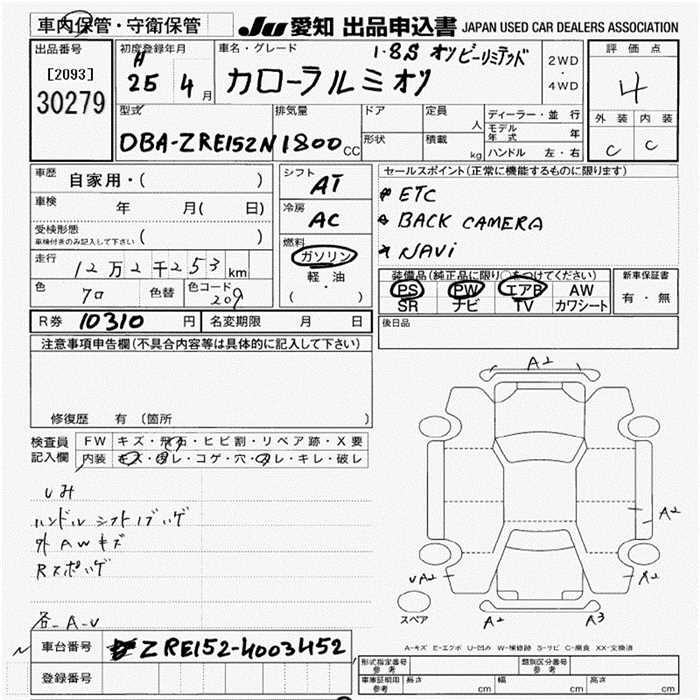 車内保管・守衛保管
JU 愛知 出品申込書 JAPAN USED CAR DEALERS ASSOCIATION
出品番号
[2093]
30279
初度登録年月
H
25 4 月
車名・グレード
1.8S オン ビーリミテッド
カローラルミオン
2WD
・
4WD
評価点
4
外装 内装
C C
型式
DBA-ZRE152N
排気量
1800 CC
ドア
形状
定員
人
積載
kg
ディーラー・並行
モデル年式 年
ハンドル 左・右
車歴
自家用・( )
車検
年 月( 日)
受検形態
車検付きのみ記入して下さい ( )
走行
12万2千253 km
色
クロ
色替
色コード
209
シフト
AT
冷房
AC
燃料
ガソリン
軽・油
( )
セールスポイント(正常に機能するものに限ります)
ETC
BACK CAMERA
NAVi
装備品(純正品に限り○をつけてください)
PS PW エアB AW
SR ナビ TV カワシート
新車保証書
有・無
R券 10310 円
名変期限 月 日
後日品
注意事項申告欄(不具合内容等は具体的に記入して下さい)
修復歴 有 (箇所
検査員
記入欄
FW キズ・飛石・ヒビ割・リペア跡・X要
内装 キズ・汚レ・コゲ・穴・スレ・キレ・破レ
シミ
ハンドル シフト
外AWキズ
各-A-U
A2
A2
A2
UA2
A2
A2
A3
スペア
A-キズ E-エクボ U-凹み W-補修跡 S-サビ C-腐食 XX-交換済
車台番号
ZRE152-4003452
登録番号
形式指定番号
参考
類別区分番号
参考
車庫証明用
参考
長さ cm 幅 cm 高さ cm